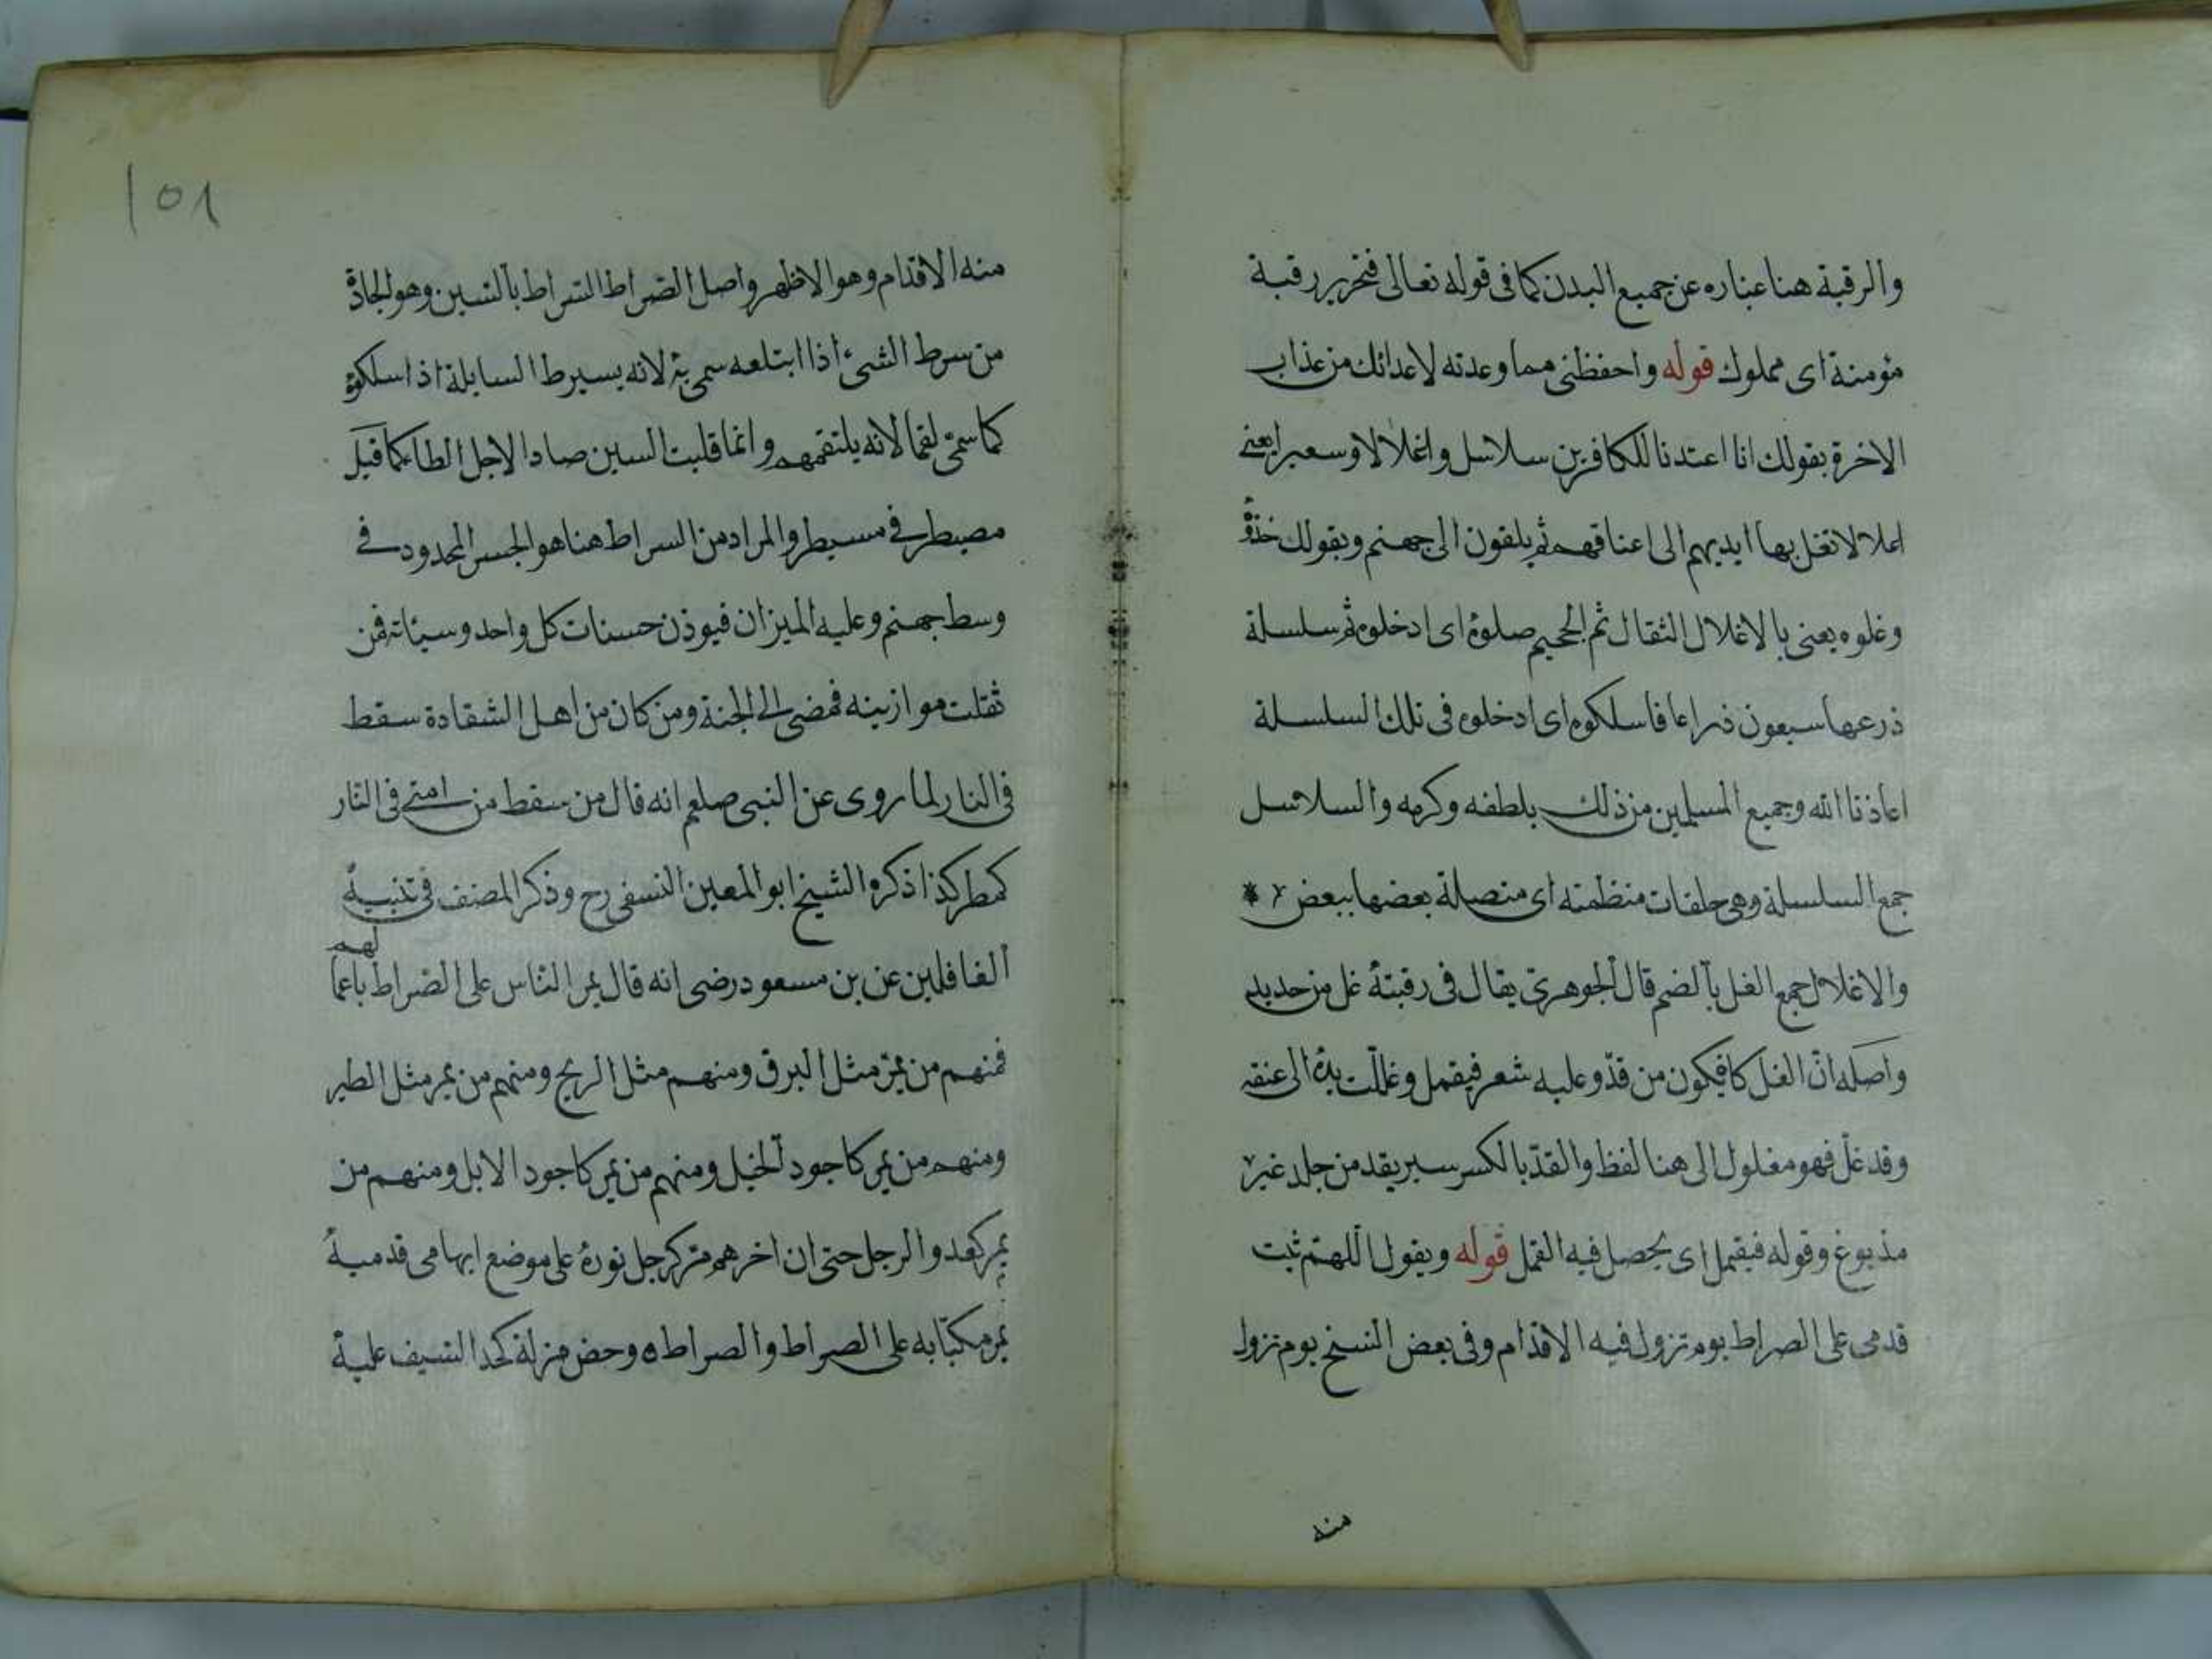 والرقبة هنا عباره عن جميع البدن كما فى قوله تعالى فتحرير رقبة
مؤمنة اى مملوك قوله واحفظنى مما وعدته لاعدائك من عذاب
الاخرة بقولك انا اعتدنا للكافرين سلاسل واغلالا وسعيرا يعنى
اغلالا تغل بها ايديهم الى اعناقهم ثم يلقون الى جهنم وبقولك خذوه
وغلوه يعنى بالاغلال الثقال ثم الجحيم صلوه اى ادخلوه ثم سلسلة
ذرعها سبعون ذراعا فاسلكوه اى ادخلوه فى تلك السلسلة
اعاذنا الله وجميع المسلمين من ذلك بلطفه وكرمه والسلاسل
جمع السلسلة وهى حلقات منظمته اى متصلة بعضها ببعض
والاغلال جمع الغل بالضم قال الجوهرى يقال فى رقبته غل من حديد
واصله ان الغل كا فيكون من قد وعليه شعر فيقمل وغللت يده الى عنقه
وقد غل فهو مغلول الى هنا لفظ والقد بالكسر سير يقد من جلد غير
مذبوغ وقوله فيقمل اى يحصل فيه القمل قوله ويقول اللهم ثبت
قدمى على الصراط يوم تزول فيه الاقدام وفى بعض النسخ يوم تزول
منه
١٥٨
منه الاقدام وهو الاظهر واصل الصراط السراط بالسين وهو الجادة
من سرط الشئ اذا ابتلعه سمى به لانه يسيرط السابلة اذا سلكوه
كما سمى لقما لانه يلتقمهم وانما قلبت السين صادا لاجل الطا كما قيل
مصيطر فى مسيطر والمراد من السراط هنا هو الجسر المحدود فى
وسط جهنم وعليه الميزان فيوذن حسنات كل واحد وسيئاته فمن
ثقلت موازينه فمضى الى الجنة ومن كان من اهل الشقادة سقط
فى النار لما روى عن النبى صلعم انه قال من سقط من امتى فى النار
كمطر كذا ذكره الشيخ ابو المعين النسفى رح وذكر المصنف فى تنبيه
الغافلين عن بن مسعود رضى انه قال يمر الناس على الصراط باعمالهم
فمنهم من يمر مثل البرق ومنهم مثل الريح ومنهم من يمر مثل الطير
ومنهم من يمر كاجود الخيل ومنهم من يمر كاجود الابل ومنهم من
يمر كعدو الرجل حتى ان اخرهم مر كرجل نوره على موضع ابهامى قدميه
يمر مكبا به على الصراط والصراط وحض مزلة كحد السيف عليه